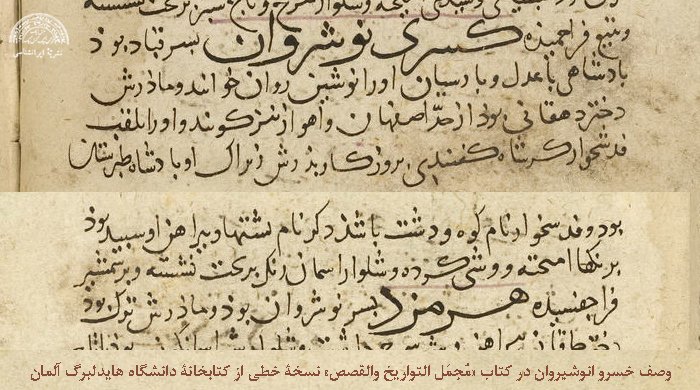 وتیغ فراجمیذه کسری نوشروان بسر قباد بوذ
بادشاهی باعدل وبارسیان اورا نوشین روان خوانند وماذرش
دختر دهقانی بوذ از حدّ اصفهان واهواز نیز کویند واورا بلقب
فدشخوارکرشاه کفتندی بروزکار بدرش زیراک او بادشاه طبرستان
بوذ وفدسخوار نام کوه ودشت باشذ دکر نام بشتها وبیراهن او سبید بوذ
برنکها امیخته ووشی کرده وشلوار اسمان رنک برتخت نشسته وبرشمشیر
فراجفسیده هرمزد بسر نوشروان بوذ وماذرش ترک بوذ
وصف خسرو انوشیروان در کتاب «مُجمَل التواریخ والقصص» نسخهٔ خطی از کتابخانهٔ دانشگاه هایدلبرگ آلمان